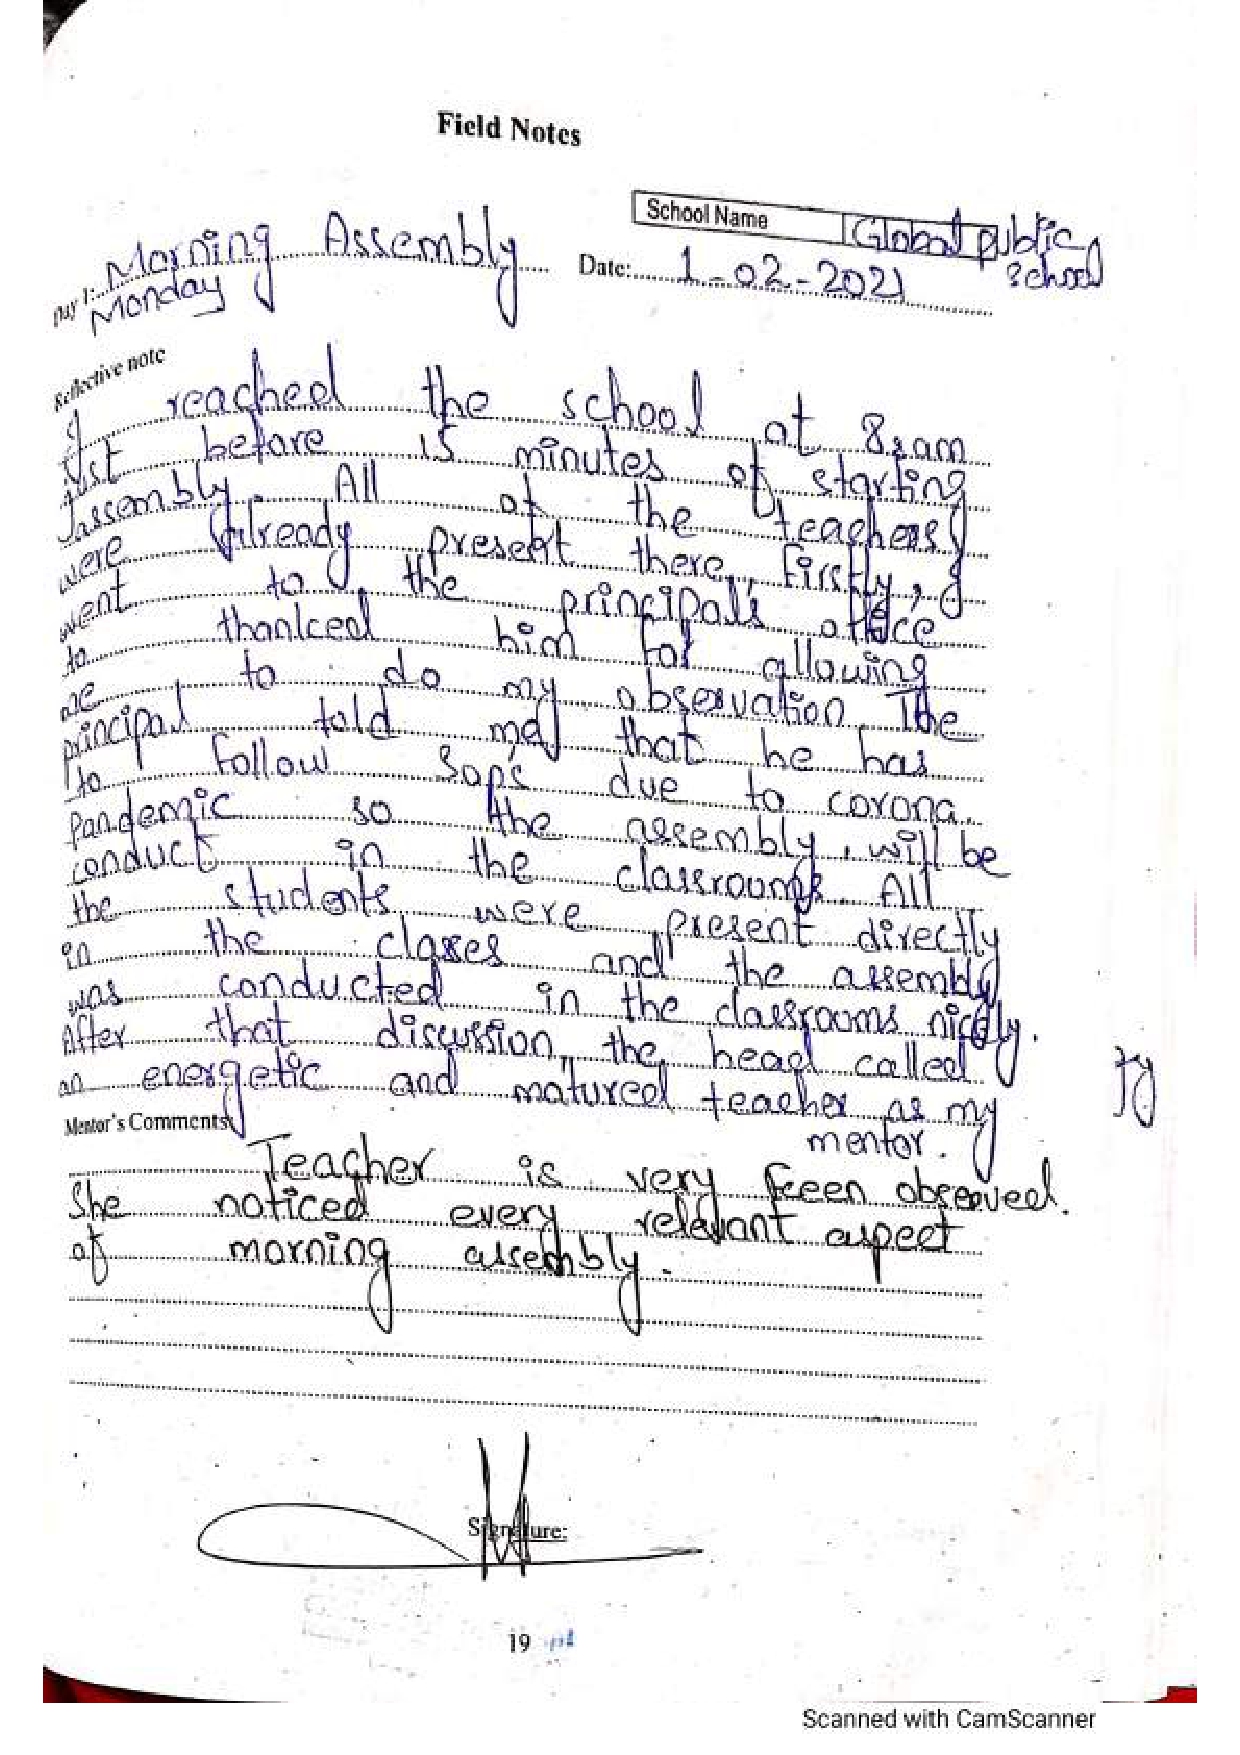 Field Notes
School Name Global public
School
Day 1: Morning Assembly Date: 1-02-2021
Monday
Reflective note
I reached the school at 8:am
Just before 15 minutes of starting
assembly. All of the teachers
were already present there. Firstly, I
went to the principal's office
to thanked him for allowing
me to do my observation. The
principal told me that he has
to follow Sops due to corona
Pandemic so the assembly will be
conduct in the classrooms. All
the students were present directly
in the classes and the assembly
was conducted in the classrooms nicely.
After that discussion, the head called
an energetic and matured teacher as my
mentor.
Mentor's Comments
Teacher is very keen observed.
She noticed every relevant aspect
of morning assembly.
Signature:
19
Scanned with CamScanner